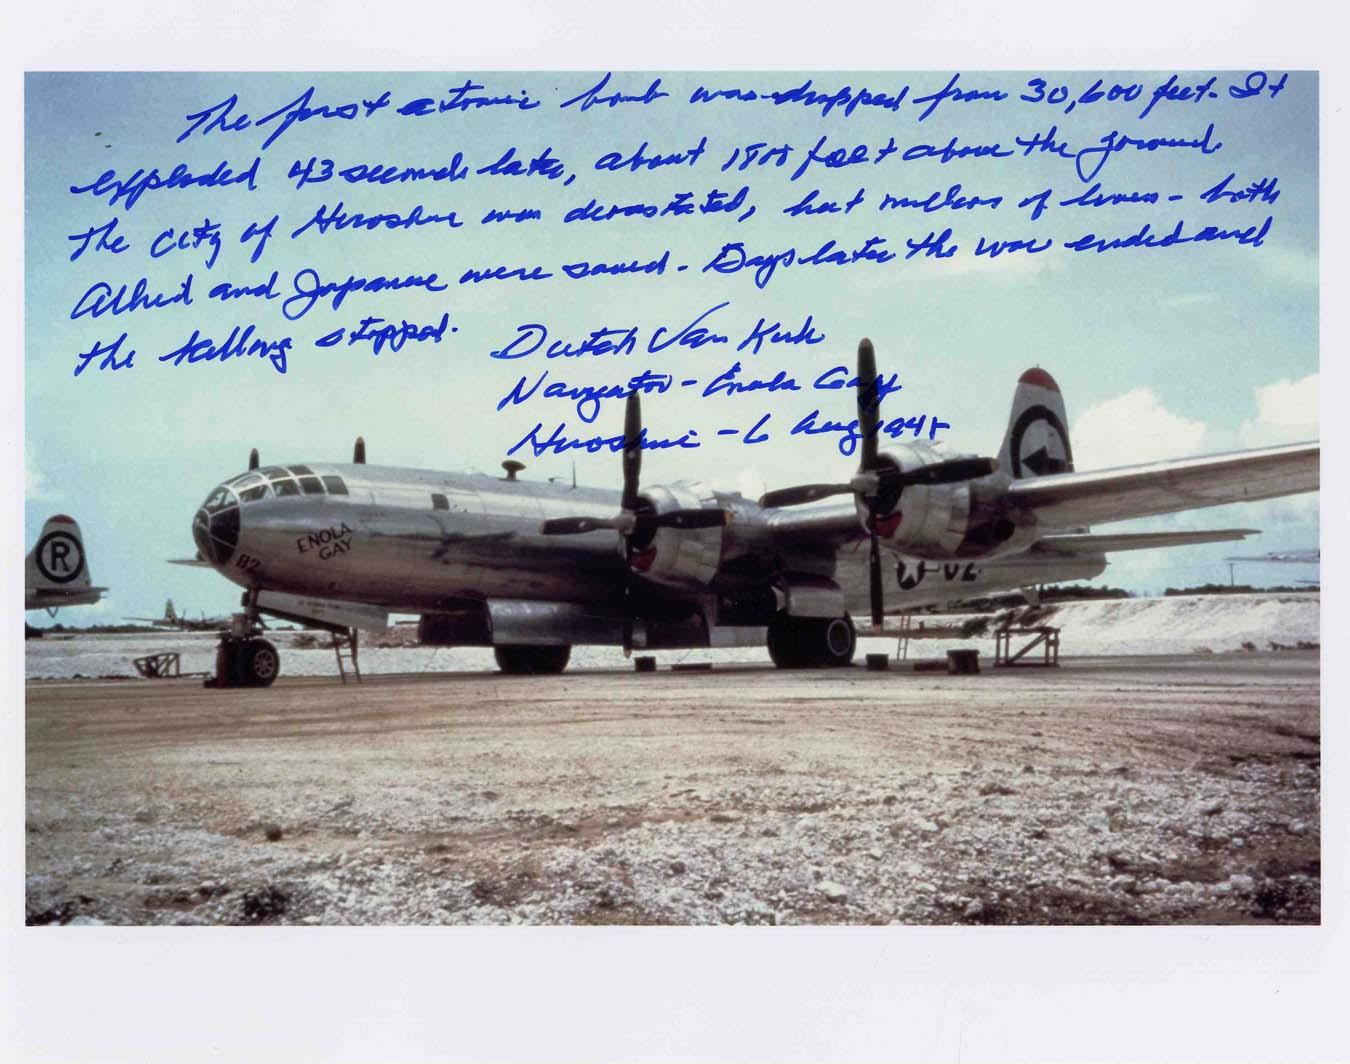 The first atomic bomb was dropped from 30,600 feet. It
exploded 43 seconds later, about 1800 feet above the ground.
The City of Hiroshima was devastated, but millions of lives - both
Allied and Japanese were saved. Days later the war ended and
the killing stopped.
Dutch Van Kirk
Navigator - Enola Gay
Hiroshima - 6 Aug 1945
ENOLA
GAY
82
R
82